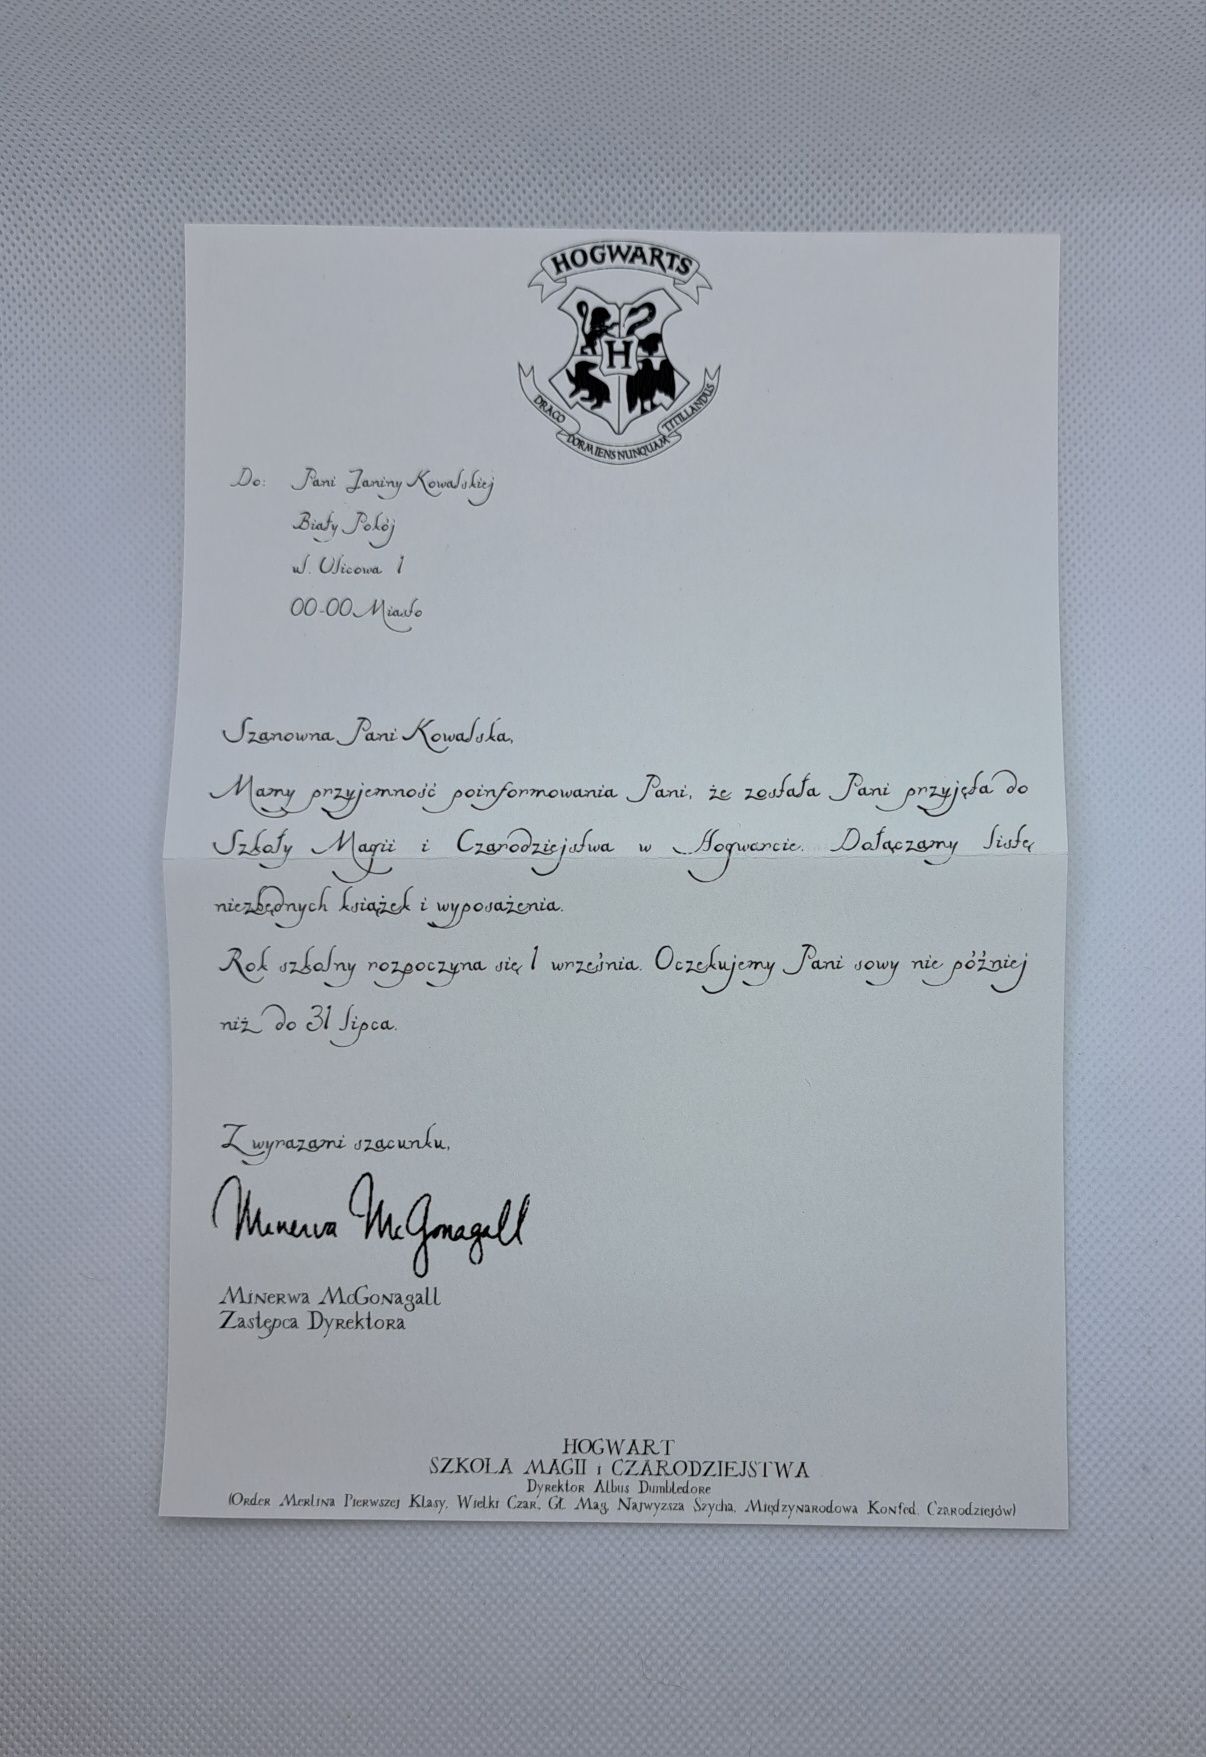 HOGWARTS
H
DRACO DORMIENS NUNQUAM TITILLANDUS
Do: Pani Janiny Kowalskiej
Biały Pokój
ul. Ulicowa 1
00-00 Miasto
Szanowna Pani Kowalska,
Mamy przyjemność poinformowania Pani, że została Pani przyjęta do
Szkoły Magii i Czarodziejstwa w Hogwarcie. Dołączamy listę
niezbędnych książek i wyposażenia.
Rok szkolny rozpoczyna się 1 września. Oczekujemy Pani sowy nie później
niż do 31 lipca.
Z wyrazami szacunku,
Minerva McGonagall
Minerwa McGonagall
Zastępca Dyrektora
HOGWART
SZKOŁA MAGII i CZARODZIEJSTWA
Dyrektor Albus Dumbledore
(Order Merlina Pierwszej Klasy, Wielki Czar., Gł. Mag, Najwyższa Szycha, Międzynarodowa Konfed. Czarodziejów)